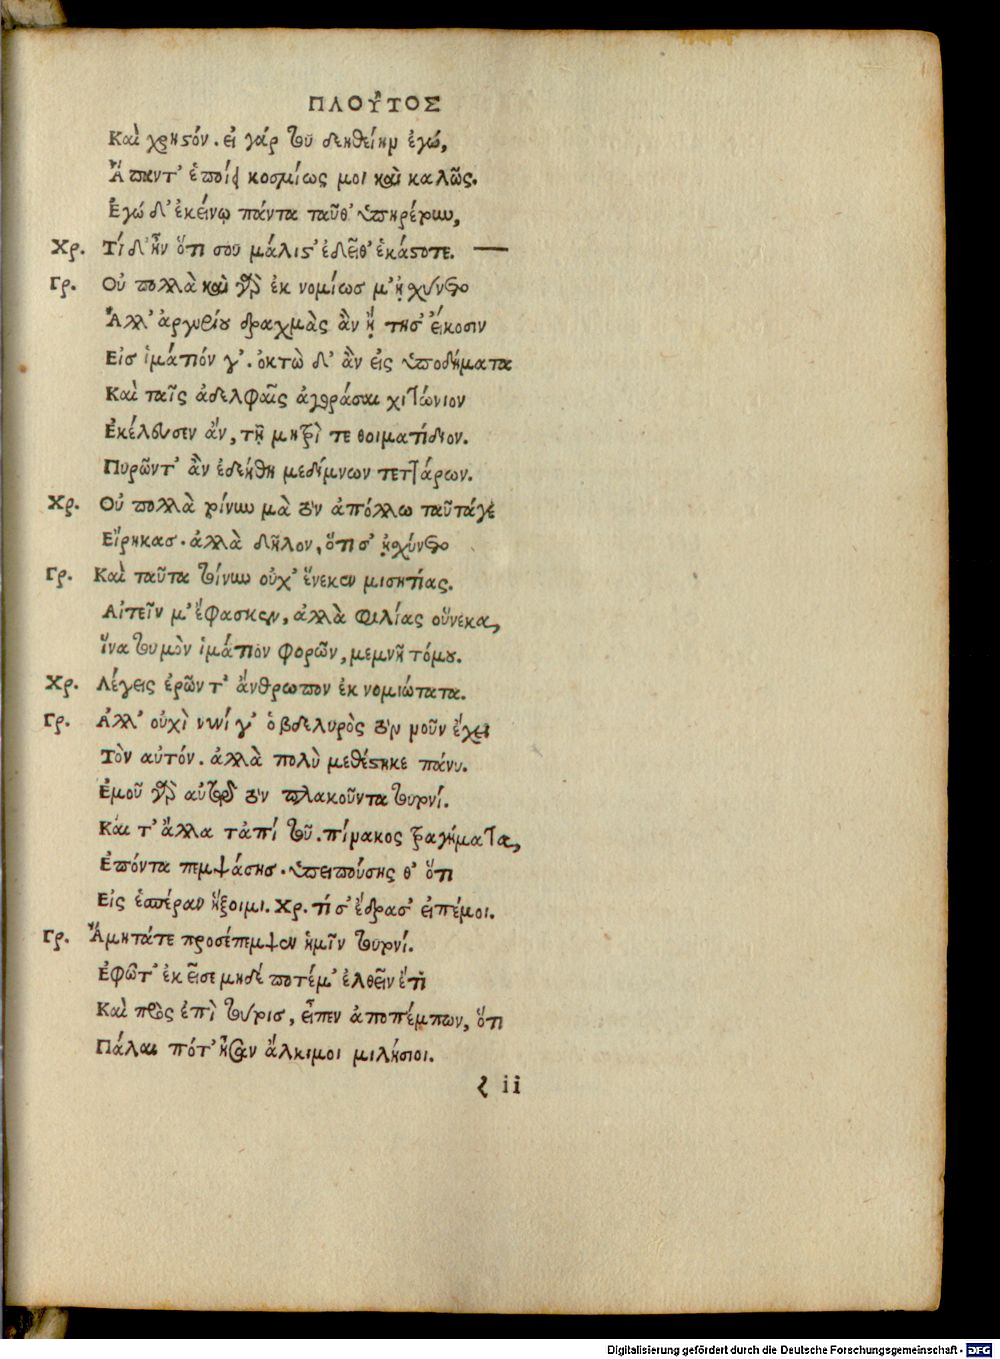 ΠΛΟΥ͂ΤΟΣ
Καὶ χρηστόν. εἰ γάρ του δεηθείην ἐγώ,
Ἅπαντ' ἐποίει κοσμίως μοι καὶ καλῶς.
Ἐγώ δ' ἐκείνῳ πάντα ταῦθ' ὑπηρέτουν,
Χρ. Τί δ' ἦν ὅτι σου μάλιστ' ἐδεῖθ' ἑκάστοτε. —
Γρ. Οὐ πολλὰ καὶ γὰρ ἐκ νομίωσ μ' ᾐσχύνετο
Ἀλλ' ἀργυρίου δραχμὰς ἂν ᾔτησ' εἴκοσιν
Εἰσ ἱμάτιόν γ'. ὀκτὼ δ' ἂν εἰς ὑποδήματα
Καὶ ταῖς ἀδελφαῖς ἀγοράσαι χιτώνιον
Ἐκέλευσεν ἄν, τῇ μητρὶ τε θοιματίδιον.
Πυρῶντ' ἂν ἐδεήθη μεδίμνων τεττάρων.
Χρ. Οὐ πολλὰ τοίνυν μὰ τὸν ἀπόλλω ταῦτάγε
Εἴρηκασ. ἀλλὰ δῆλον, ὅτι σ' ᾐσχύνετο
Γρ. Καὶ ταῦτα τοίνυν οὐχ' ἕνεκεν μισητίας.
Αἰτεῖν μ' ἔφασκεν, ἀλλὰ φιλίας οὕνεκα,
ἵνα τουμὸν ἱμάτιον φορῶν, μεμνῇτόμου.
Χρ. Λέγεις ἐρῶντ' ἄνθρωπον ἐκ νομιώτατα.
Γρ. Ἀλλ' οὐχὶ νυνί γ' ὁ βδελυρὸς τὸν νοῦν ἔχει
Τὸν αὐτόν. ἀλλὰ πολὺ μεθέστηκε πάνυ.
Ἐμοῦ γὰρ αὐτῷ τὸν πλακοῦντα τουτονί.
Καί τ' ἄλλα τἀπί τοῦ. πίνακος τραγήματα,
Ἐπόντα πεμψάσησ. ὑπειπούσης θ' ὅτι
Εἰς ἑσπέραν ἥξοιμι. Χρ. τί σ' ἔδρασ' εἰπέμοι.
Γρ. Ἄμητάτε προσέπεμψεν ἡμῖν τουτονί.
Ἐφῶτ' ἐκεῖσε μηδέ ποτέμ' ἐλθεῖν ἔτι
Καὶ πρὸς ἐπὶ τούτοισ, εἶπεν ἀποπέμπων, ὅτι
Πάλαι πότ' ἦσαν ἄλκιμοι μιλήσιοι.
ζ ii
Digitalisierung gefördert durch die Deutsche Forschungsgemeinschaft - DFG